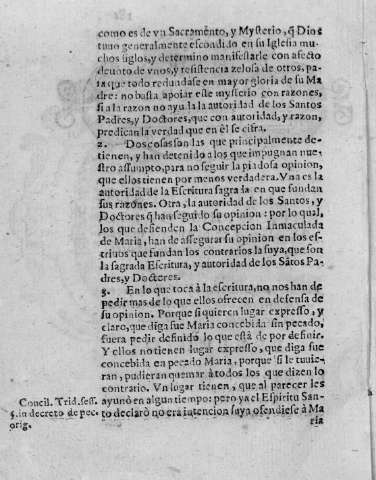 como es de vn Sacramẽnto, y Mysterio, q̃ Dios
tuuo generalmente escondido en su Iglesia mu-
chos siglos, y determino manifestarle con afecto
deuoto de vnos, y resistencia zelosa de otros, pa-
ra que todo redundase en mayor gloria de su Ma
dre: no basta apoiar este mysterio con razones,
si a la razon no ayuda la autoridad de los Santos
Padres, y Doctores, que con autoridad, y razon,
predican la verdad que en èl se cifra.
2. Dos cosas son las que principalmente de-
tienen, y han detenido a los que impugnan nue-
stro assumpto, para no seguir la piadosa opinion,
que ellos tienen por menos verdadera. Vna es la
autoridad de la Escritura sagrada en que fundan
sus razones. Otra, la autoridad de los Santos, y
Doctores q̃ han seguido su opinion: por lo qual,
los que defienden la Concepcion Inmaculada
de Maria, han de assegurar su opinion en los es-
triuos que fundan los contrarios la suya, que son
la sagrada Escritura, y autoridad de los Sãtos Pa-
dres, y Doctores.
3. En lo que toca à la escritura, no nos han de
pedir mas de lo que ellos ofrecen en defensa de
su opinion. Porque si quieren lugar expresso, y
claro, que diga fue Maria concebida sin pecado,
fuera pedir definido lo que està de por definir.
Y ellos no tienen lugar expresso, que diga fue
concebida en pecado Maria, porque si le tuuie-
ran, pudieran quemar à todos los que dizen lo
contratio. Vn lugar tienen, que al parecer les
ayunò en algun tiempo: pero ya el Espiritu San-
to declarò no era intencion suya ofendiese à Ma
ria
Concil. Trid. sess.
5. in decreto de pec.
orig.